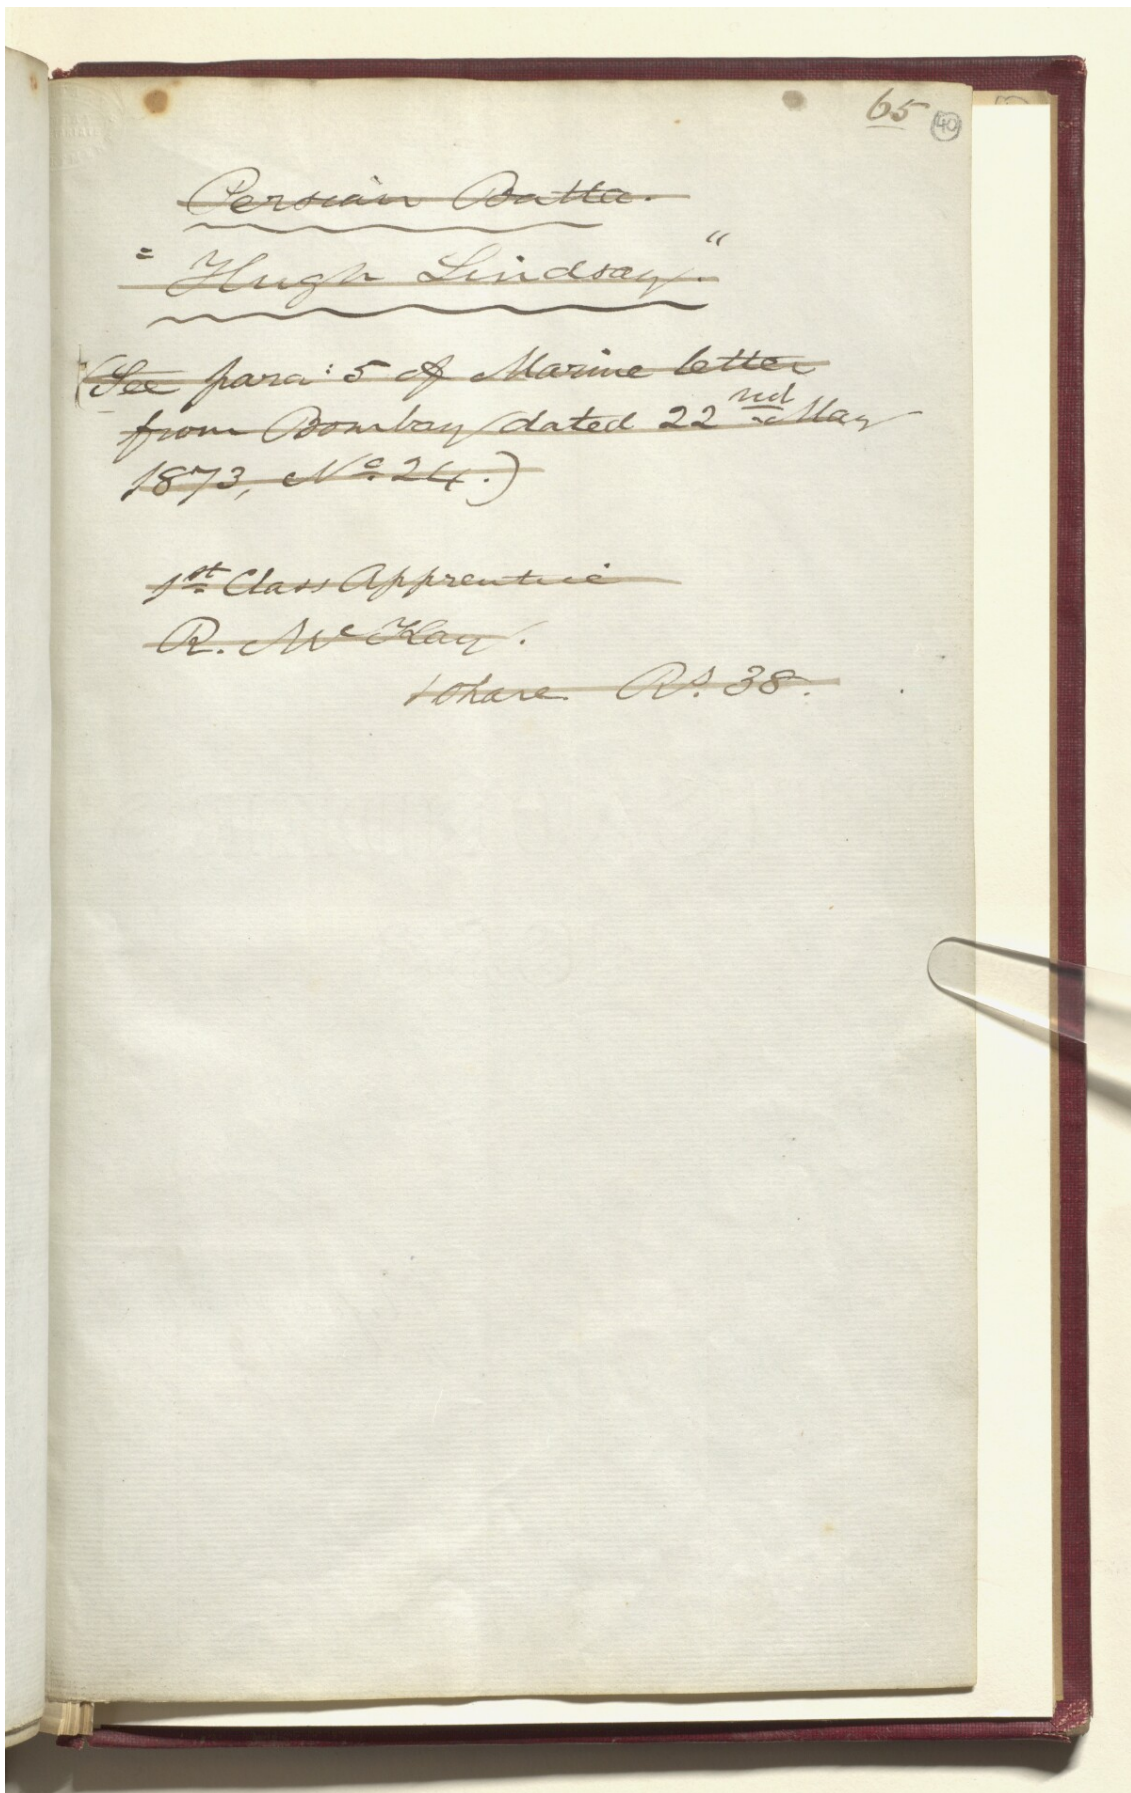 65 40
Persian Batta.
"Hugh Lindsay."
(See para: 5 of Marine letter
from Bombay dated 22nd May
1873, No. 24.)
1st Class Apprentice
R. McKay.
1 Share Rs. 38.